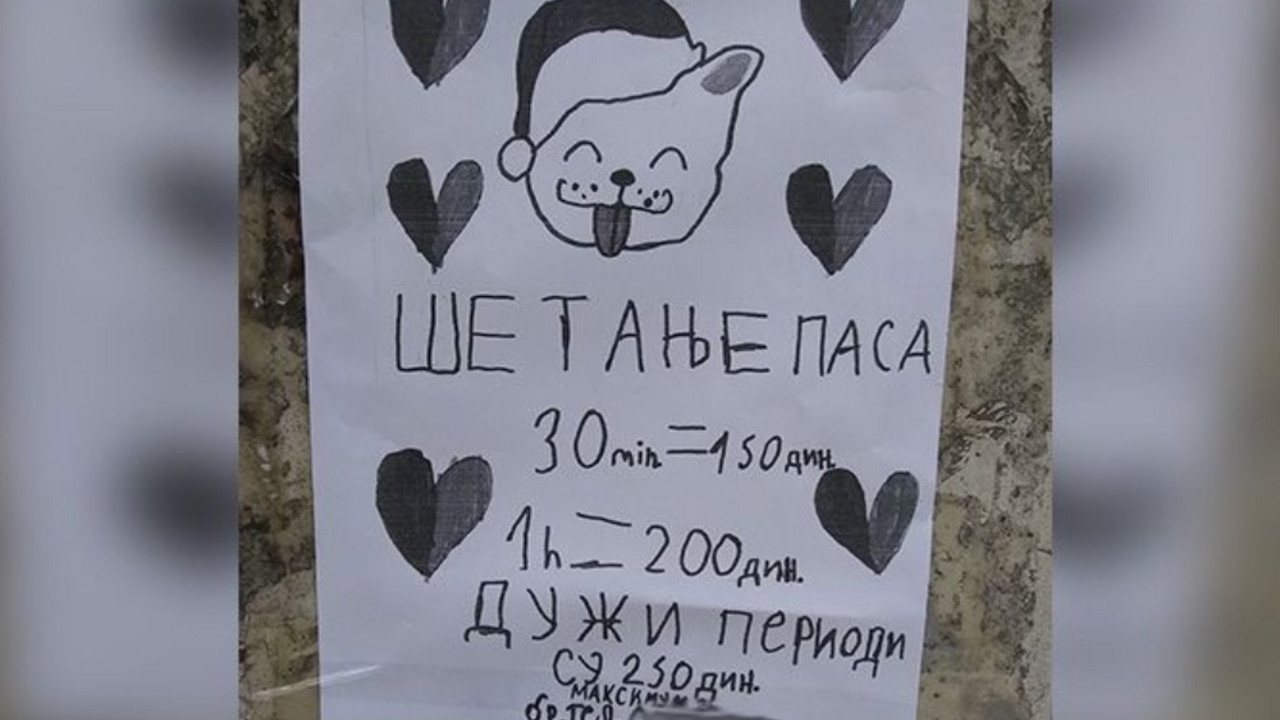 ШЕТАЊЕ ПАСА
30 min=150 дин.
1h=200 дин.
ДУЖИ ПЕРИОДИ
СУ 250 дин.
МАКСИМУМ
бр. тел